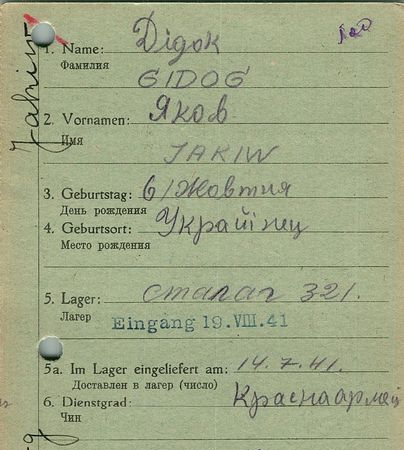 1. Name: Дідок
Фамилия
GIDOG
2. Vornamen: Яков
Имя
JAKIW
3. Geburtstag: 6/Жовтня
День рождения
4. Geburtsort: Украйінец
Место рождения
5. Lager: сталаг 321.
Лагерь
Eingang 19.VIII.41
5a. Im Lager eingeliefert am: 14.7.41.
Доставлен в лагерь (число)
6. Dienstgrad: Краснаармеец
Чин